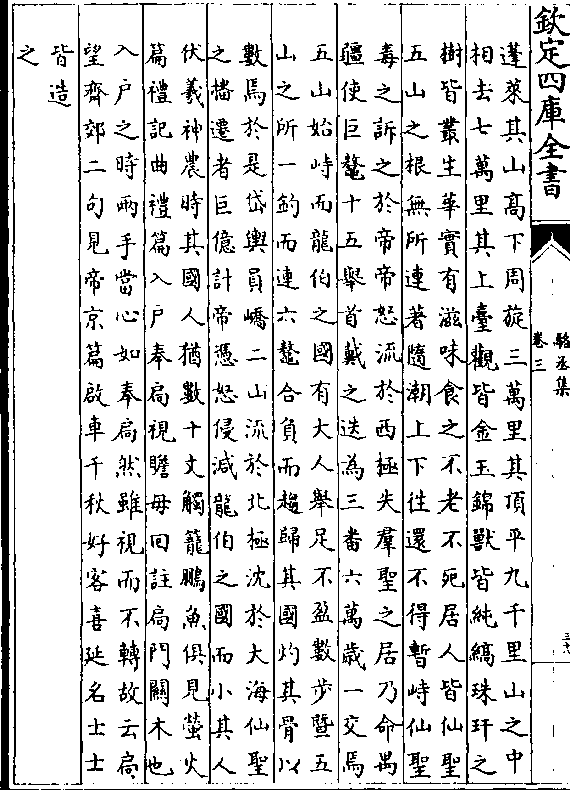 欽定四庫全書
駱丞集
卷三
蓬萊其山髙下周旋三萬里其頂平九千里山之中
相去七萬里其上臺觀皆金玉錦獸皆純縞珠玕之
樹皆叢生華實有滋味食之不老不死居人皆仙聖
五山之根無所連著隨潮上下徃還不得暫峙仙聖
毒之訴之於帝帝怒流於西極失羣聖之居乃命禺
疆使巨鼇十五舉首戴之迭為三畨六萬歳一交焉
五山始峙而龍伯之國有大人舉足不盈數步暨五
山之所一釣而連六鼇合負而趨歸其國灼其骨以
數焉於是岱輿員嶠二山流於北極沈於大海仙聖
之播遷者巨億計帝憑怒侵減龍伯之國而小其人
伏羲神農時其國人猶數十丈觸籠鵬魚俱見螢火
篇禮記曲禮篇入户奉扃視瞻毋囬註扃門關木也
入户之時兩手當心如奉扃然雖視而不轉故云扃
望齊郊二句見帝京篇啟車千秋好客喜延名士士
皆造
之